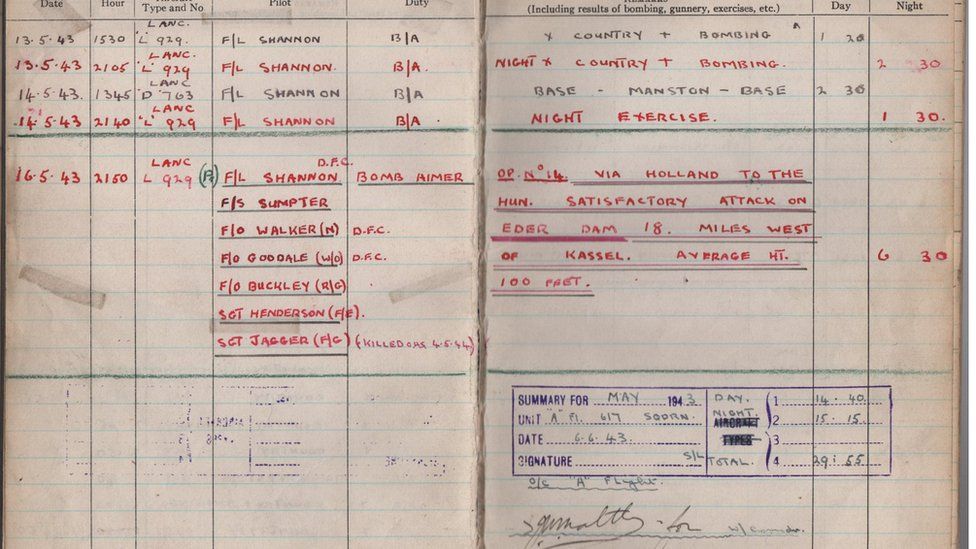 Date Hour Type and No Pilot Duty
(Including results of bombing, gunnery, exercises, etc.) Day Night
LANC.
13.5.43 1530 "L" 929. F/L SHANNON B/A X COUNTRY + BOMBING 1 20
LANC.
13.5.43 2105 "L" 929 F/L SHANNON. B/A. NIGHT X COUNTRY + BOMBING. 2 30
LANC
14.5.43. 1345 "D" 763 F/L SHANNON B/A BASE - MANSTON - BASE 2 30
LANC
14.5.43 2140 "L" 929 F/L SHANNON B/A. NIGHT EXERCISE. 1 30.
LANC D.F.C.
16.5.43 2150 L 929 F/L SHANNON BOMB AIMER OP. No 14. VIA HOLLAND TO THE
F/S SUMPTER HUN. SATISFACTORY ATTACK ON
F/O WALKER (N) D.F.C. EDER DAM 18. MILES WEST
F/O GOODALE (W/O) D.F.C. OF KASSEL. AVERAGE HT. 6 30
F/O BUCKLEY (R/G) 100 FEET.
SGT HENDERSON (F/E).
SGT JAGGER (F/G) (KILLED 4.5.44)
SUMMARY FOR MAY 1943 DAY. 1 14.40
UNIT "A" Fl. 617 SQDRN. NIGHT. AIRCRAFT 2 15.15.
DATE 6.6.43. TYPES 3
SIGNATURE S/L TOTAL. 4 29:55
O/C "A" Flight.
for W/Commdr.